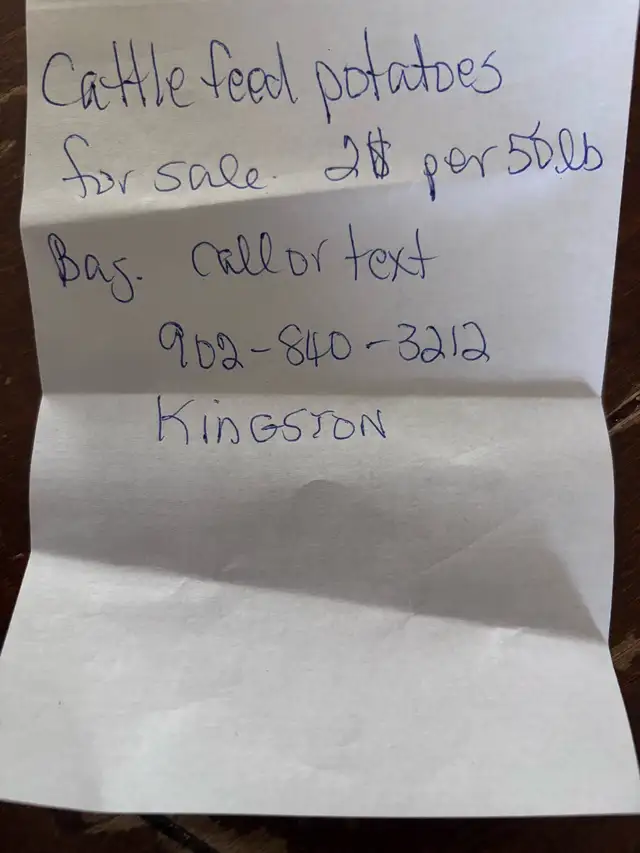 Cattle feed potatoes
for sale. 2$ per 50lb
Bag. call or text
902-840-3212
KINGSTON